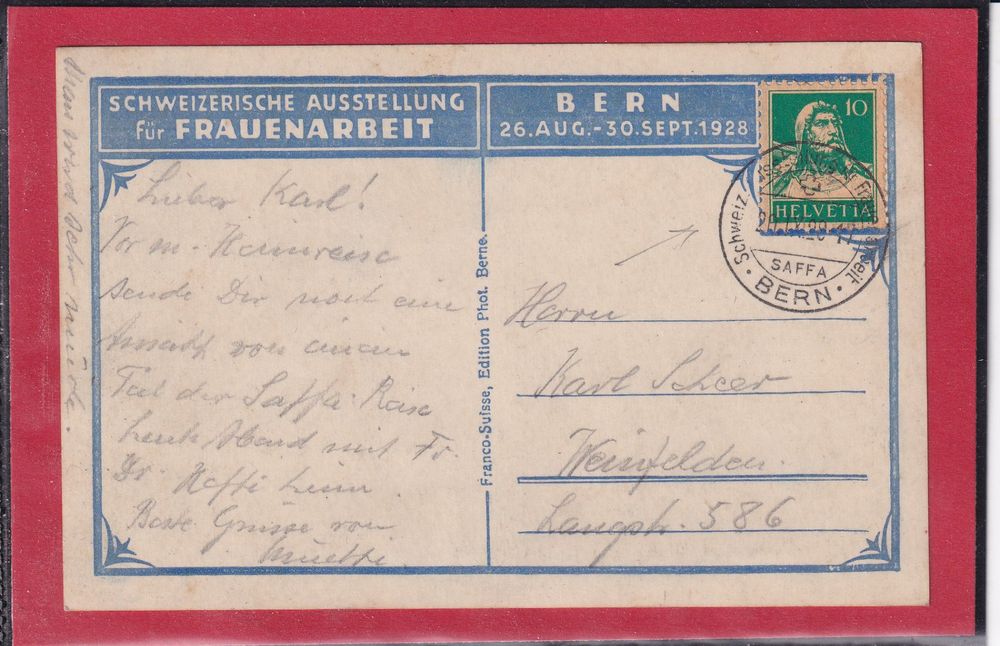 SCHWEIZERISCHE AUSSTELLUNG
für FRAUENARBEIT
BERN
26. AUG. - 30. SEPT. 1928
10
HELVETIA
Schweiz
SAFFA
BERN
Lieber Karl!
Vor m. Heimreise
sende Dir noch eine
Ansicht von einem
Teil der Saffa. Reise
heute Abend mit Fr.
Dr. Hefti heim.
Beste Grüsse von
Man wird sehr müde.
Franco-Suisse, Edition Phot. Berne.
Herrn
Karl Scheer
Weinfelden
Langstr. 586